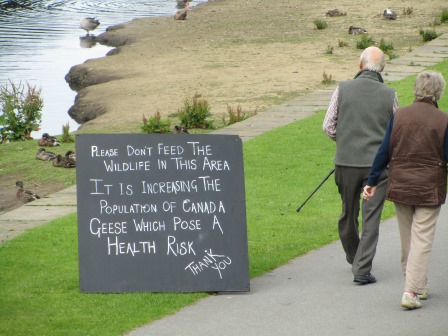 Please Don't Feed The
Wildlife In This Area
It Is Increasing The
Population Of Canada
Geese Which Pose A
Health Risk
Thank
You